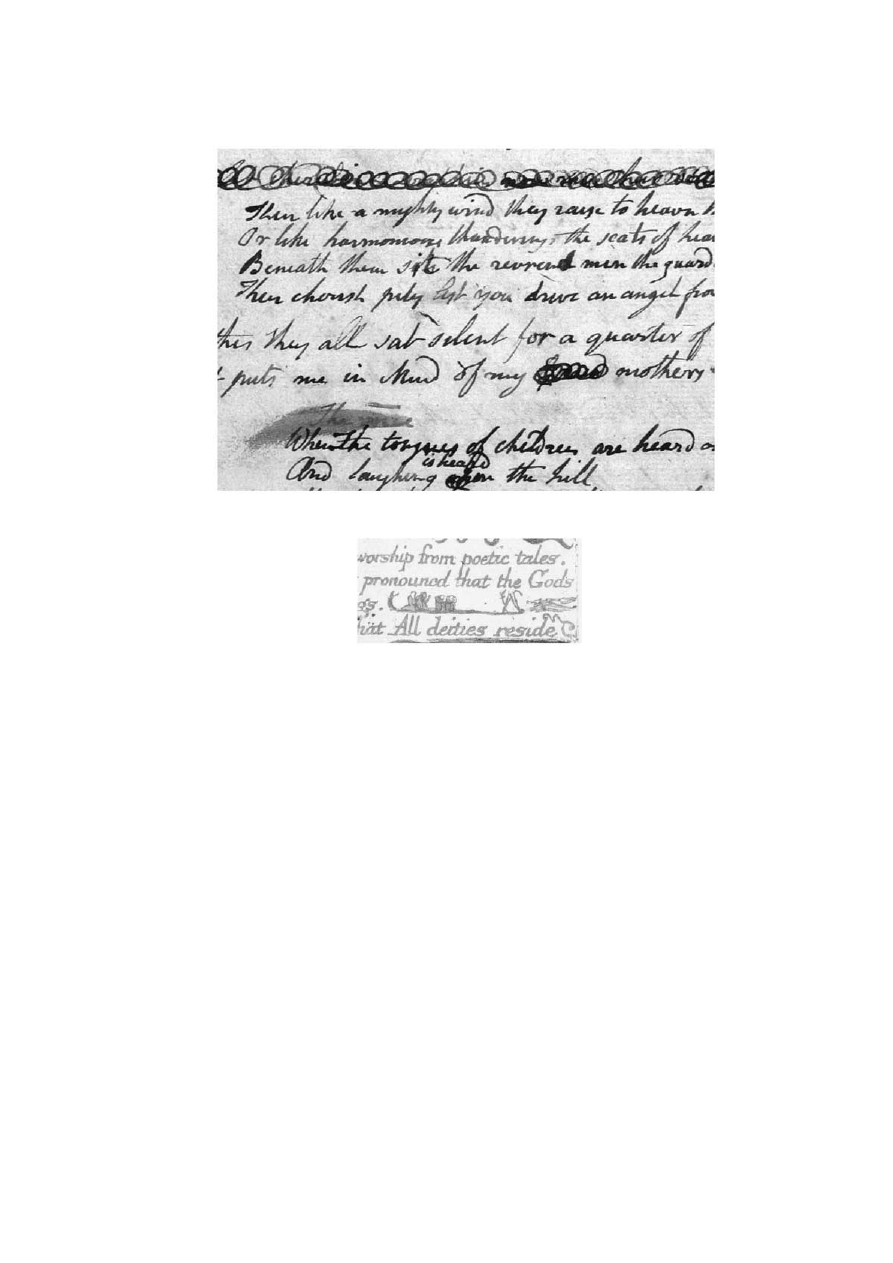 Then like a mighty wind they raise to heavn
Or like harmonious thunderings the seats of hea
Beneath them sit the revrend men the guard
Then cherish pity lest you drive an angel fro
this they all sat silent for a quarter of
puts me in Mind of my mothers
When the tongues of children are heard o
is heard
And laughing upon the hill
worship from poetic tales.
pronouncd that the Gods
gs.
hat All deities reside